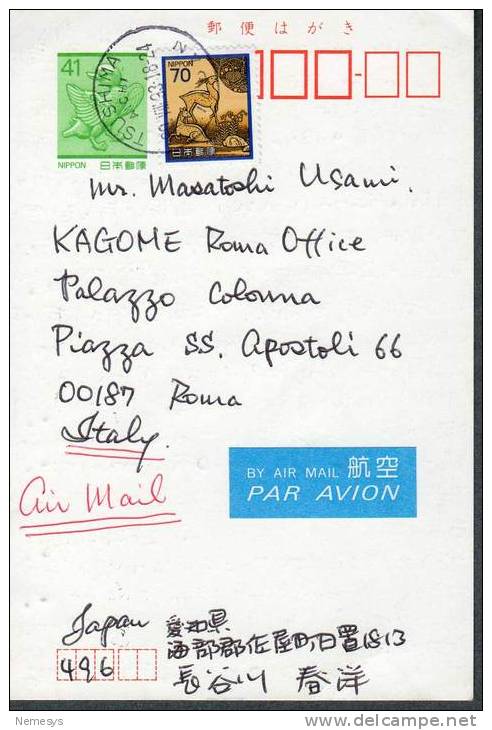 郵便はがき
41
NIPPON
日本郵便
NIPPON
70
日本郵便
TSUSHIMA
Mr. Masatoshi Usami.
KAGOME Roma Office
Palazzo Colonna
Piazza SS. Apostoli 66
00187 Roma
Italy.
Air Mail
BY AIR MAIL 航空
PAR AVION
Japan 愛知県
海部郡佐屋町日置1813
496
長谷川 春洋
Nemesys
delcampe.net